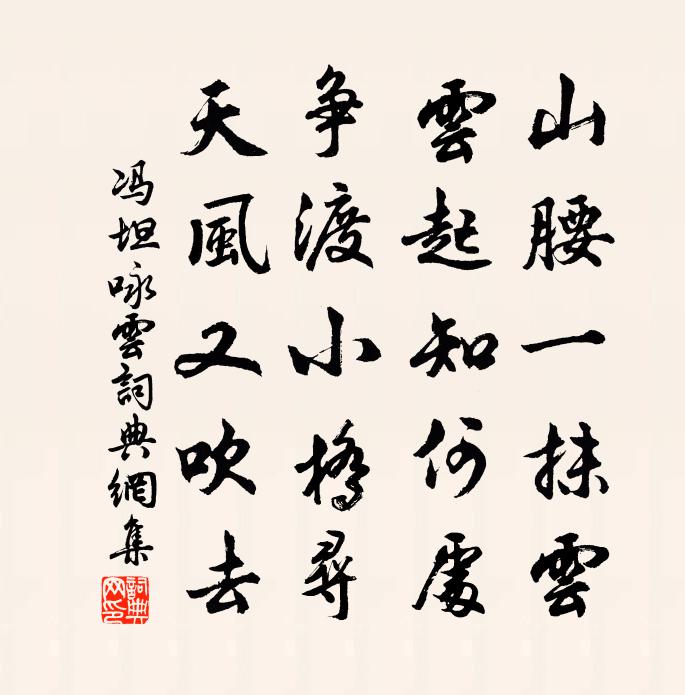 山腰一抹雲
雲起知何處
争渡小橋尋
天風又吹去
冯坦咏雲詞典網集
詞典網印